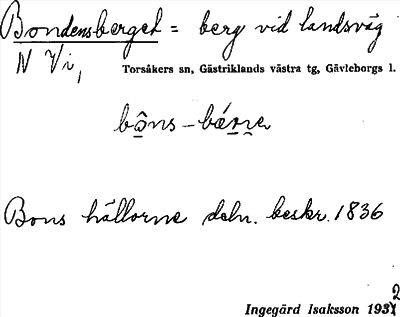 Bondensberget = berg vid landsväg
N Vi,
Torsåkers sn, Gästriklands västra tg, Gävleborgs l.
bôns-bǽrne
Bons hällorne deln. beskr. 1836
Ingegärd Isaksson 1932